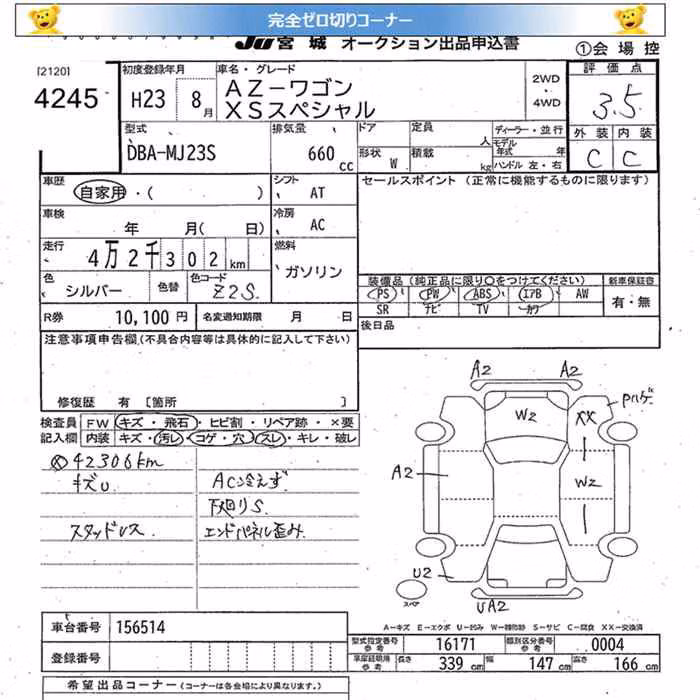 完全ゼロ切りコーナー
JU宮城 オークション出品申込書
①会場控
[2120]
4245
初度登録年月
H23 8月
車名・グレード
AZ-ワゴン
XSスペシャル
2WD
・
4WD
評価点
3.5
外装 内装
C C
型式
DBA-MJ23S
排気量
660 cc
ドア 定員 人
形状 W 積載 kg
ディーラー・並行
モデル年式 年
ハンドル 左・右
車歴
自家用・( )
シフト
AT
セールスポイント (正常に機能するものに限ります)
車検
年 月( 日)
冷房
AC
走行
4万2千302km
燃料
ガソリン
色
シルバー
色替
色コード
Z2S.
装備品 (純正品に限り○をつけてください)
新車保証書
PS PW ABS エアB AW
SR ナビ TV カワ
有・無
R券 10,100円
名変通知期限 月 日
後日品
注意事項申告欄(不具合内容等は具体的に記入して下さい)
修復歴 有 [箇所 ]
検査員記入欄
FW キズ・飛石・ヒビ割・リペア跡・×要
内装 キズ・汚レ・コゲ・穴・スレ・キレ・破レ
42306km
キズU
AC冷えず
下廻りS
スタッドレス
エンドパネル歪み
A2 A2
W2
XX
Pハゲ
A2
W2
U2
スペア
UA2
A-キズ E-エクボ U-凹み W-補修跡 S-サビ C-腐食 XX-交換済
車台番号 156514
登録番号
型式指定番号 参考 16171
類別区分番号 参考 0004
車庫証明用 参考 長さ 339cm 幅 147cm 高さ 166cm
希望出品コーナー (コーナーは各会場により異なります。)